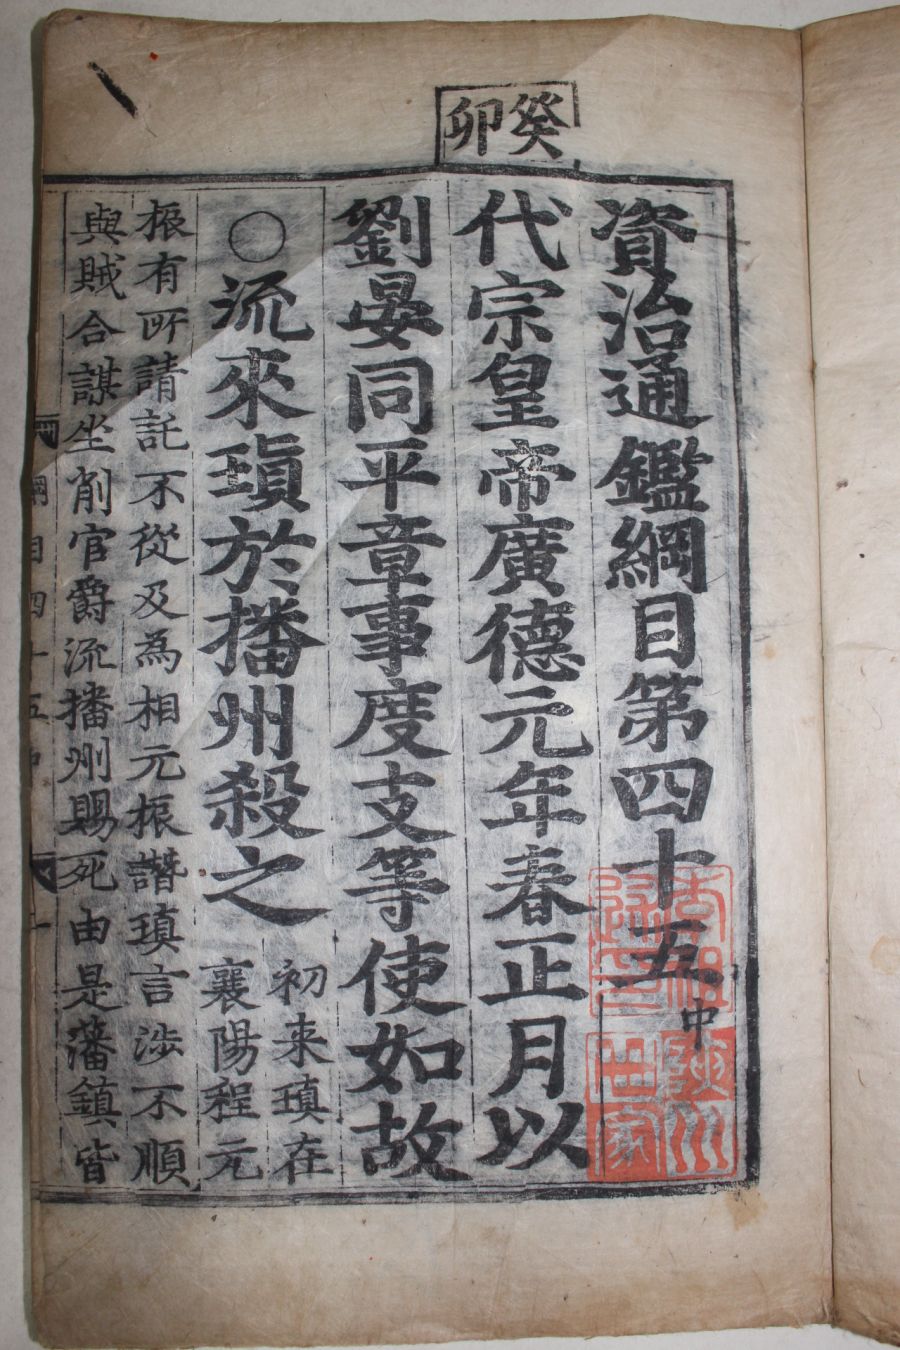 癸卯
資治通鑑綱目第四十五中
代宗皇帝廣德元年春正月以
劉晏同平章事度支等使如故
○流來瑱於播州殺之
初来瑱在
襄陽程元
振有所請託不從及為相元振譖瑱言涉不順
與賊合謀坐削官爵流播州賜死由是藩鎮皆
綱目四十五中